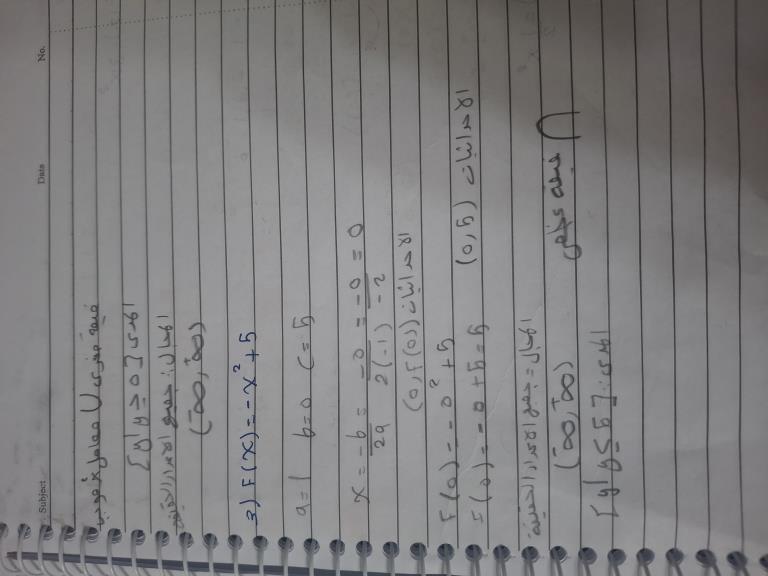 Subject
Date
No.
قيمة صغرى U معامل x² موجب
{y|y ≥ 0} المدى
المجال: جميع الاعداد الحقيقية
(-∞, ∞)
3) F(x) = -x² + 5
a = 1 b = 0 c = 5
x = -b/2a = -0/2(-1) = -0/-2 = 0
الاحداثيات (0, F(0))
F(0) = -0² + 5
F(0) = -0 + 5 = 5 الاحداثيات (0, 5)
المجال = جميع الاعداد الحقيقية:
(-∞, ∞) قيمة عظمى ∩
{y|y ≤ 5} المدى: